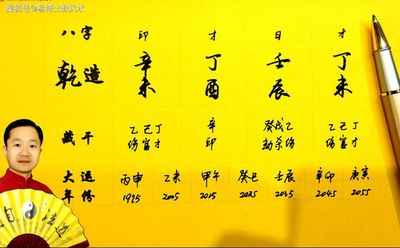 搜狐号@易博士教风水
八字 印 才 日 才
乾造 辛 丁 壬 丁
未 酉 辰 未
藏干 乙己丁 辛 癸戊乙 乙己丁
伤官才 印 劫杀伤 伤官才
大运 丙申 乙未 甲午 癸巳 壬辰 辛卯 庚寅
年份 1995 2005 2015 2025 2035 2045 2055
自 道